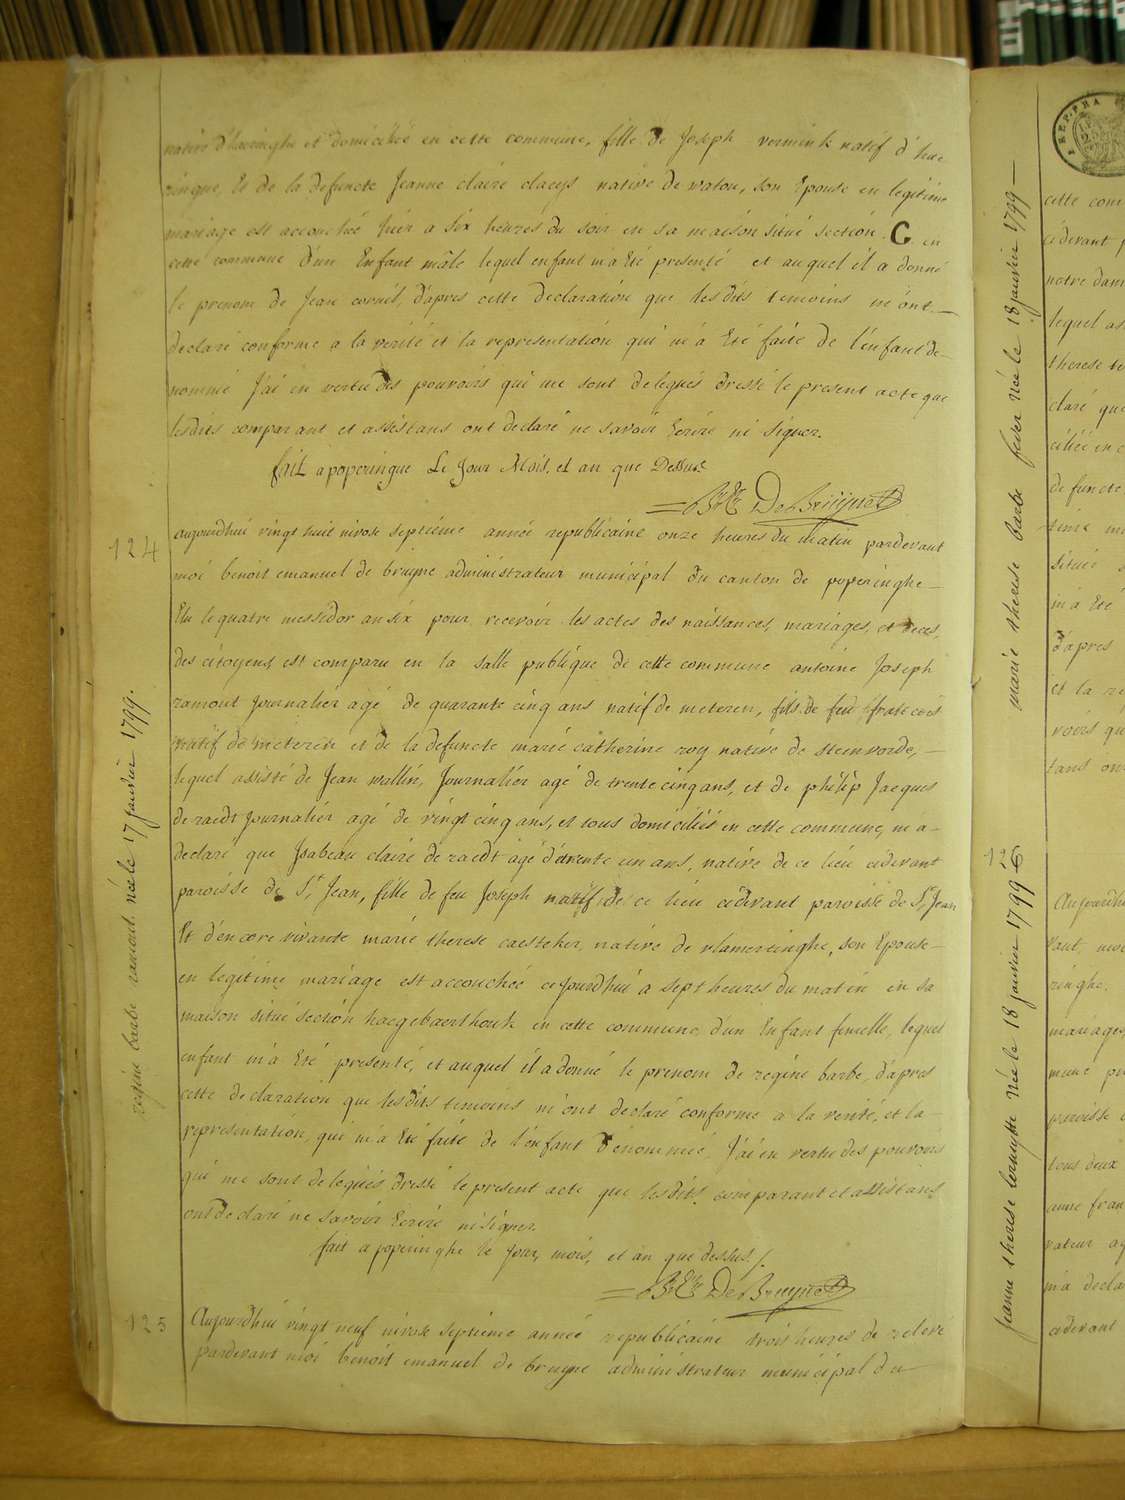 native d'haringhe et domiciliée en cette commune, fille de Joseph vermink natif d'hae
ringue, Et de la defuncte Jeanne claire claeys native de watou, son Epouse en legitime
mariage est accouchée hier a six heures du soir en sa maison situé section G. en
cette commune d'un Enfant mâle lequel enfant m'a Eté presenté et auquel il a donné
le prenom de Jean cornil, d'apres cette declaration que lesdits temoins m'ont
declaré conforme a la verité et la representation qui m'a Eté faite de l'enfant de-
nommé J'ai en vertu des pouvoirs qui me sont delegués dressé le present acte que
lesdits comparant et assistans ont declaré ne savoir Ecrire ni signer.
fait a poperingue Le Jour Mois, et an que Dessus
De Bruyne
124
aujourdhui vingt huit nivose septieme année republicaine onze heures du Matin pardevant
moi benoit emanuel de bruyne administrateur municipal du canton de poperinghe
Elu le quatre messidor an six pour recevoir les actes des naissances, mariages, et deces,
des citoyens, est comparu en la salle publique de cette commune antoine Joseph
ramout Journalier agé de quarante cinq ans natif de meteren, fils de feu francois
natif de meteren et de la defuncte marie catherine roy native de steenvorde,
lequel assisté de Jean wallin, Journalier agé de trente cinq ans, et de philip Jacques
de raedt Journalier agé de vingt cinq ans, et tous domiciliés en cette commune, m'a
declaré que Isabeau claire de raedt agé de trente un ans, native de ce lieu cidevant
paroisse de St Jean, fille de feu Joseph natif de ce lieu cidevant paroisse de St Jean
Et d'encore vivante marie therese caesteker, native de vlamertinghe, son Epouse
en legitime mariage est accouchée cejourdhui a sept heures du matin en sa
maison situé section haegebaerthouk en cette commune, d'un Enfant femelle, lequel
enfant m'a Eté presenté, et auquel il a donné le prenom de regine barbe, d'apres
cette declaration que lesdits temoins m'ont declaré conforme a la verité, et la
representation, qui m'a Eté faite de l'enfant denommé. J'ai en vertu des pouvoirs
qui me sont delegués dressé le present acte que lesdits comparant et assistans
ont declaré ne savoir Ecrire ni signer.
fait a poperinghe le Jour, mois, et an que dessus /.
De Bruyne
125
Aujourdhui vingt neuf nivose septieme année republicaine trois heures de relevé
pardevant moi benoit emanuel de bruyne administrateur municipal du
regine barbe ramout née le 17 janvier 1799.
marie therese barbe fever née le 18 janvier 1799
Jeanne therese née le 18 janvier 1799
cette com
cidevant
notre dam
lequel as
therese
claré que
ciliée en c
defuncte
time
situé
m'a Eté
d'apres
et la re
voirs qu
tans on
126
Aujourdhu
vant, moi
ringhe,
mariages
mune pu
paroisse
tous deux
anne fran
vateur ag
m'a decla
cidevant